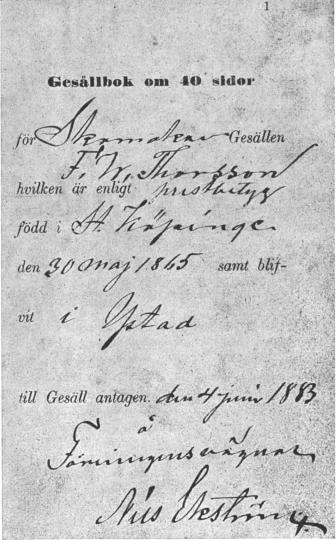 1
Gesällbok om 40 sidor
för Skomakar Gesällen
F. W. Thorsson
hvilken är enligt prestbetyg
född i St. Köpinge
den 30 maj 1865 samt blif-
vit i Ystad
till Gesäll antagen. den 4 juni 1883
å
Föreningens vägnar
Nils Ekström